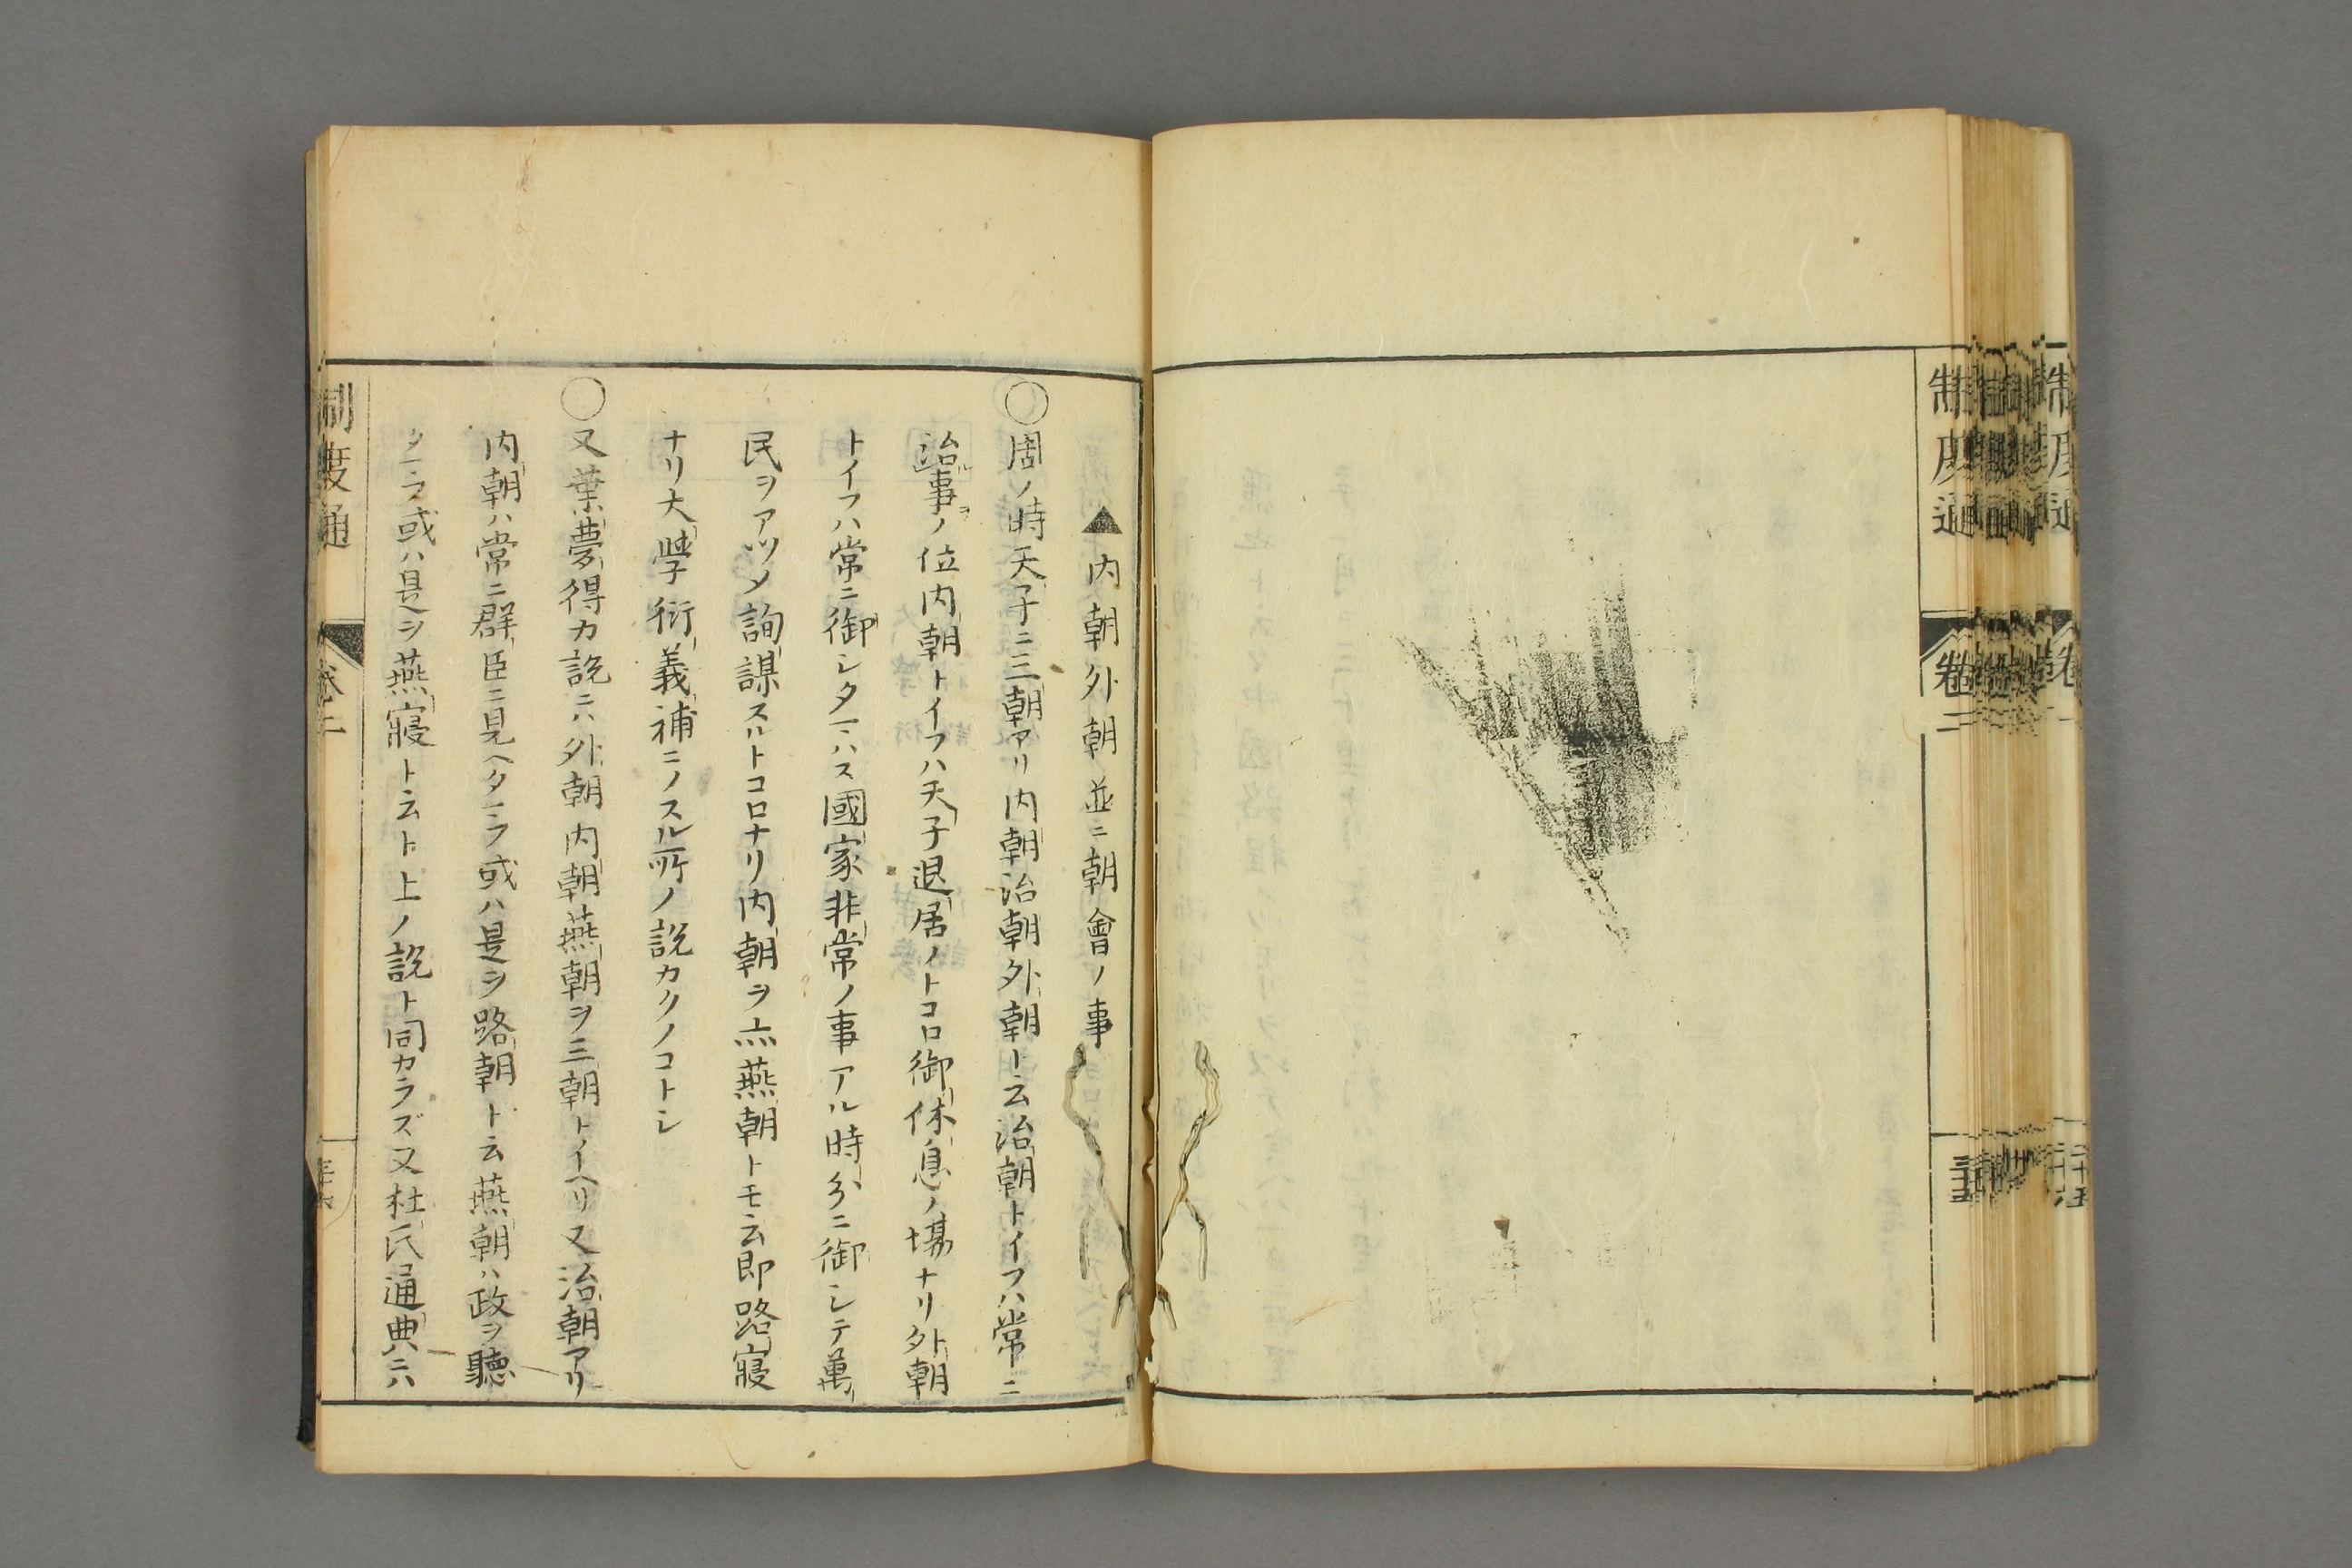 制度通 卷二 三十五
▲内朝外朝並ニ朝會ノ事
○周ノ時天子ニ三朝アリ内朝治朝外朝ト云治朝トイフハ常ニ
治事ノ位内朝トイフハ天子退居ノトコロ御休息ノ場ナリ外朝
トイフハ常ニ御シタマハス國家非常ノ事アル時分ニ御シテ萬
民ヲアツメ詢謀スルトコロナリ内朝ヲ亦燕朝トモ云即路寢
ナリ大學衍義補ニノスル所ノ説カクノコトシ
○又葉夢得カ説ニハ外朝内朝燕朝ヲ三朝トイヘリ又治朝アリ
内朝ハ常ニ群臣ニ見ヘタマフ或ハ是ヲ路朝ト云燕朝ハ政ヲ聽
タマフ或ハ是ヲ燕寢ト云ト上ノ説ト同カラズ又杜氏通典ニハ
制度通 卷二